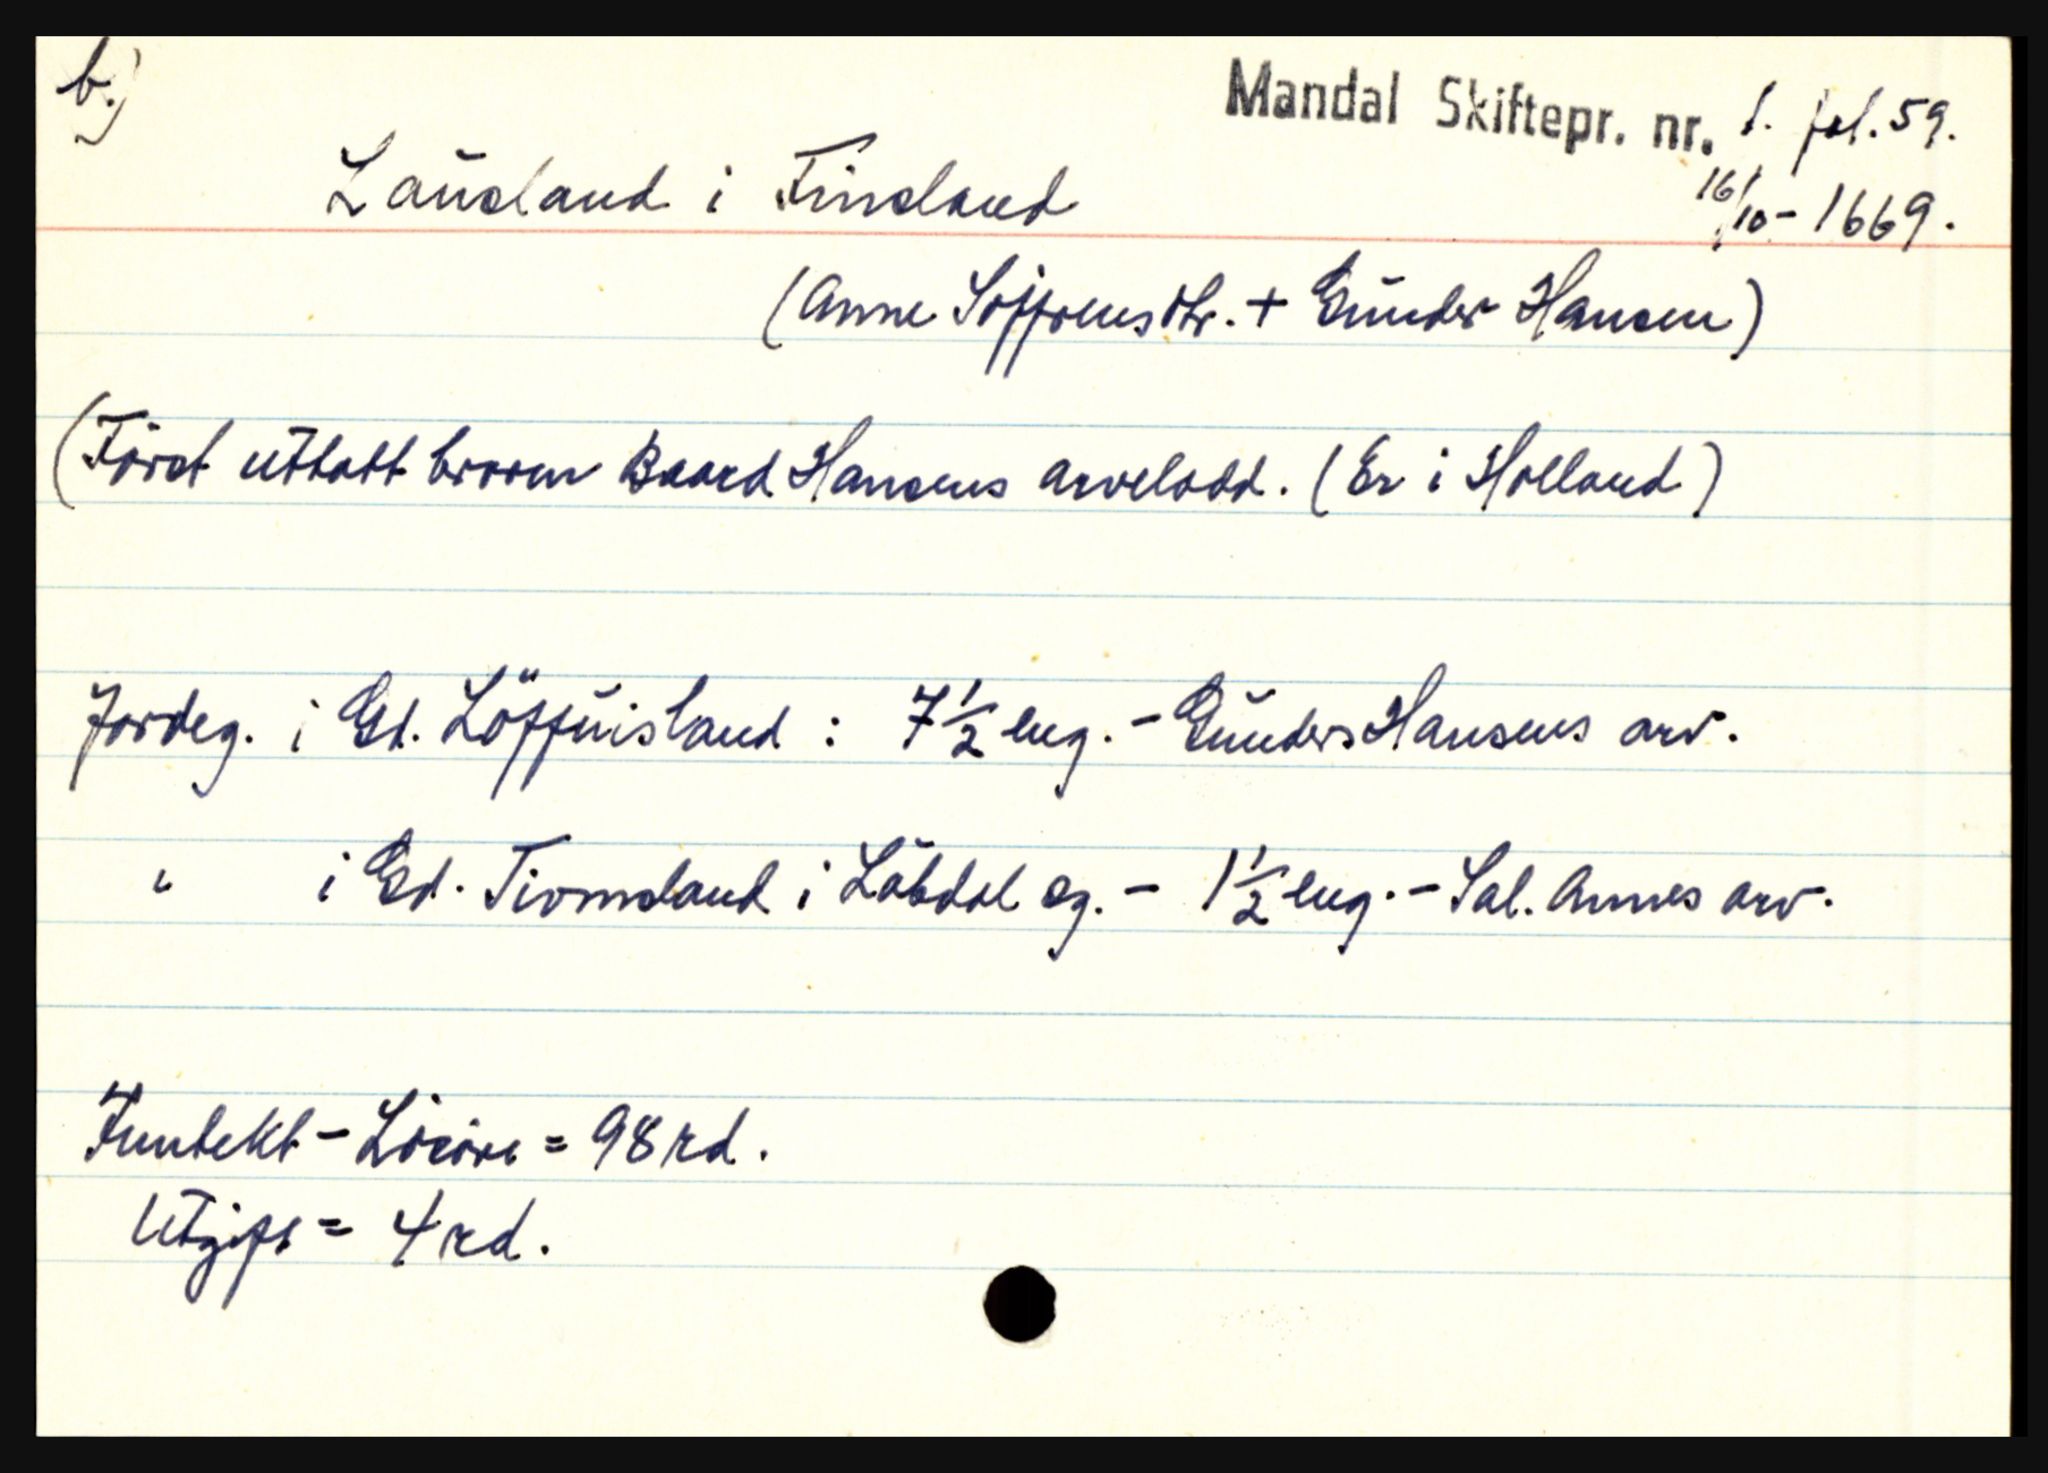 b.)
Mandal Skiftepr. nr. 1. fol. 59.
16/10 - 1669.
Lausland i Finsland
(Anne Soffrensdtr. + Gunder Hansen)
(Først uttatt broren Baard Hansens arvelodd. (Er i Holland)
Jordeg. i Gd. Löffuisland : 7 1/2 eng. - Gunders Hansens arv.
" i Gd. Tiomsland i Løbdal sg. - 1 1/2 eng. - Sal. Annes arv.
Inntekt - Lösøre = 98 rd.
Utgift = 4 rd.